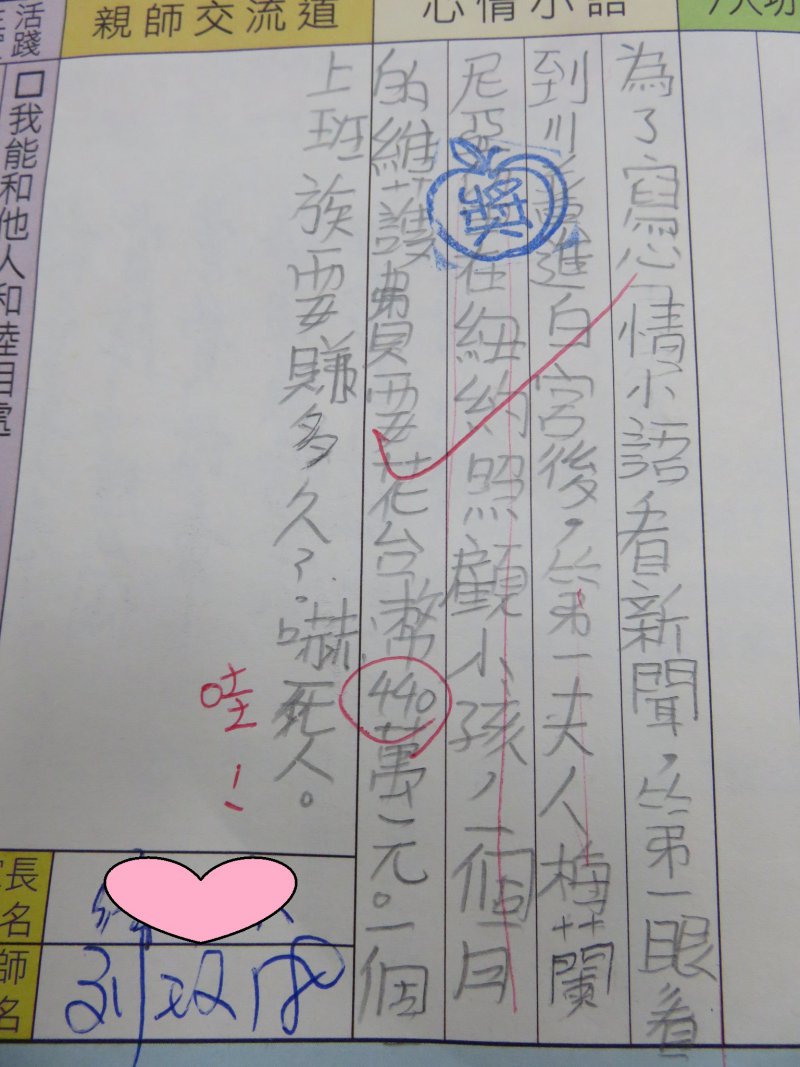 心情小語
為了寫心情小語看新聞，第一眼看
到川普進白宮後，第一夫人梅蘭
尼亞在紐約照顧小孩，一個月
的維護費要花台幣440萬元。一個
上班族要賺多久？嚇死人。
獎
哇！
親師交流道
活踐
□我能和他人和睦相處
長名
師名